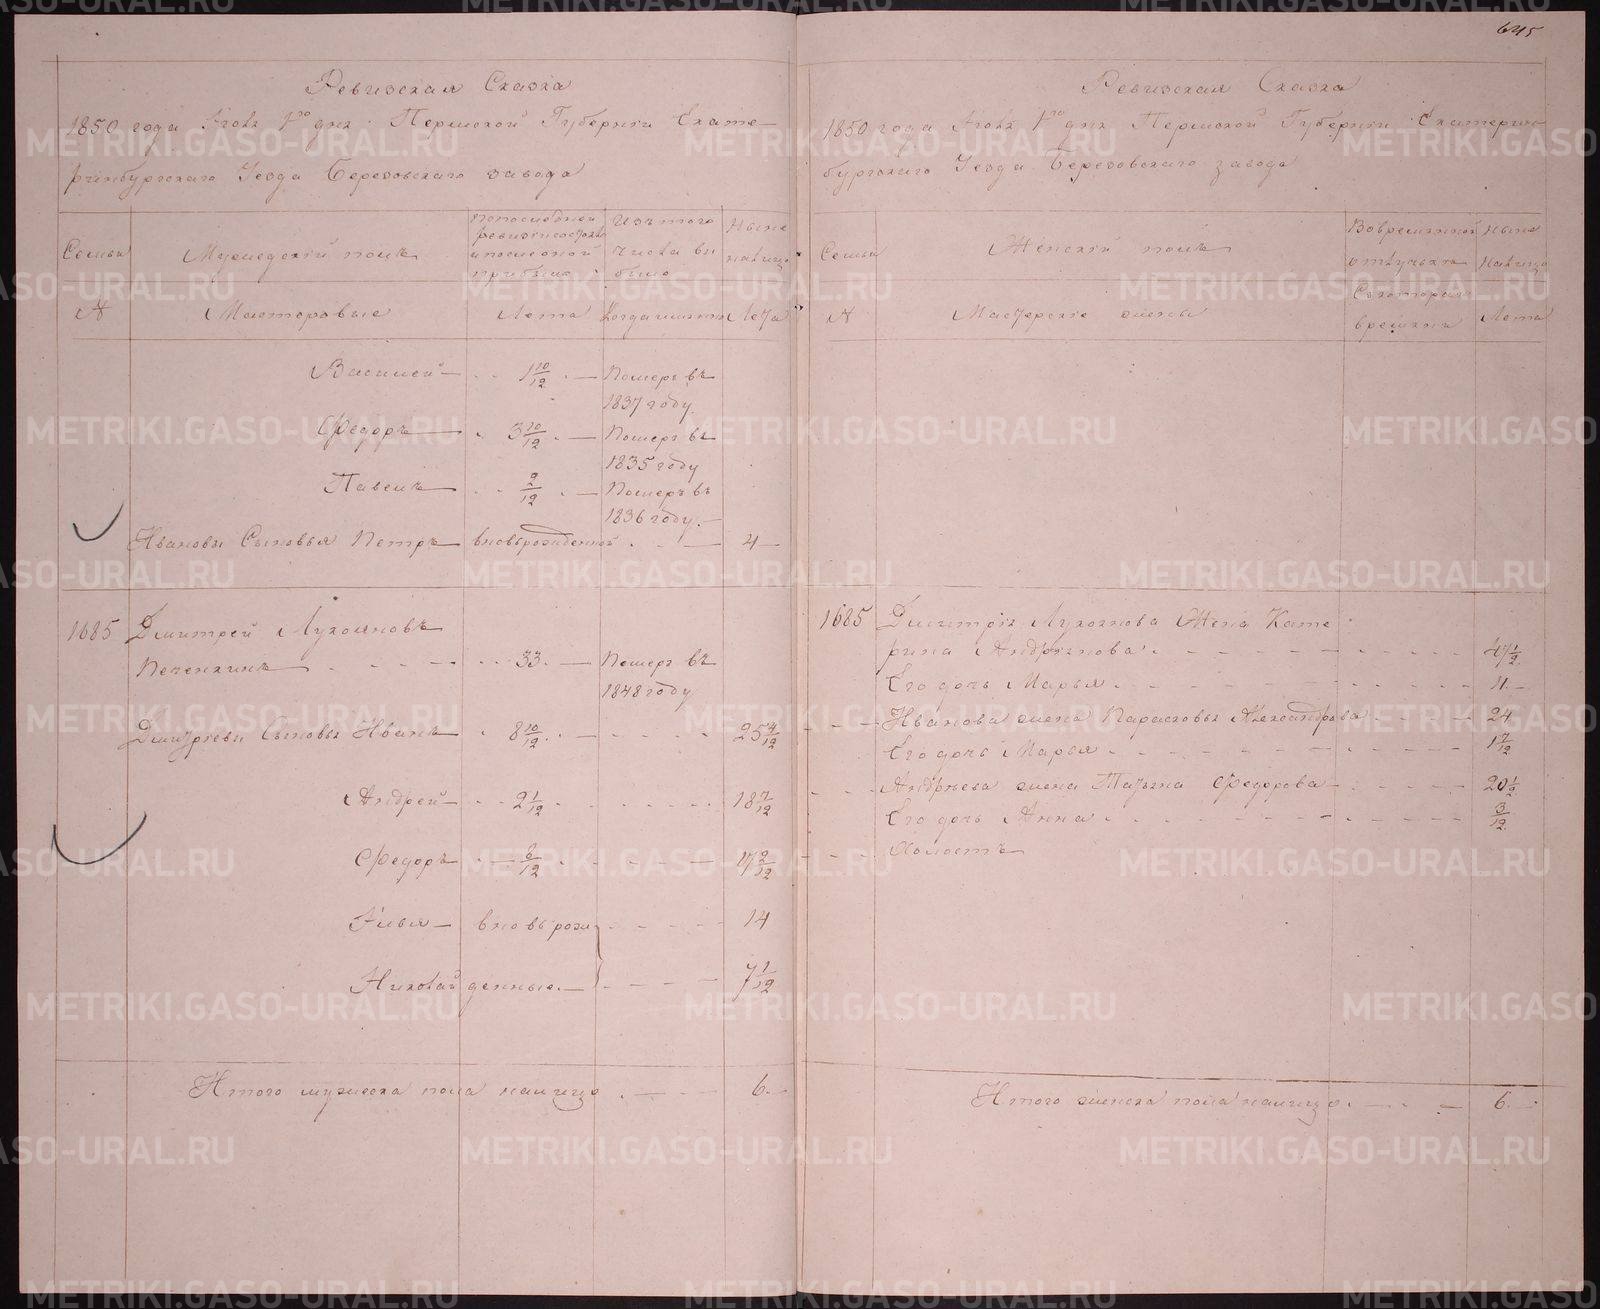 645
Ревизская Сказка
1850 года Iюля 1го дня Пермской Губернiи Екате-
ринбургскаго Уезда Березовскаго завода
Семьи
Мужеский полъ
По последней ревизiи состояло и после оной прибыло
Изъ того числа выбыло
Ныне налицо
№
Мастеровые
Лета
Когда именно
Лета
Василей 1 10/12 Померъ въ
1837 году
Федоръ 3 10/12 Померъ въ
1835 году
Павелъ 2/12 Померъ въ
1836 году.
Ивановы Сыновья Петръ вновьрожденной 4
1685 Дмитрей Лукояновъ
Печенкинъ 33. Померъ въ
1848 году
Дмитрiевы Сыновья Иванъ 8 10/12 25 4/12
Андрей 2 1/12 18 7/12
Федоръ 8/12 17 2/12
Илья вновь рож 14
Николай денные. 7 1/12
Итого мужеска пола налицо 6.
Ревизская Сказка
1850 года Iюля 1го дня Пермской Губернiи Екатерин-
бургскаго Уезда Березовскаго завода
Семьи
Женскiй полъ
Во временной отлучкъ
Ныне налицо
№
Мастерскiе жены
С котораго времени
Лета
1685 Дмитрiя Лукоянова Жена Кате
рина Андрiянова 47 1/2
Его дочь Марья 11.
Иванова жена Парасковья Александрова 24
Его дочь Марья 1 7/12
Андрѣева жена Татьяна Федорова 20 1/2
Его дочь Анна 3/12
Холостъ
Итого женска пола налицо. 6.
METRIKI.GASO-URAL.RU